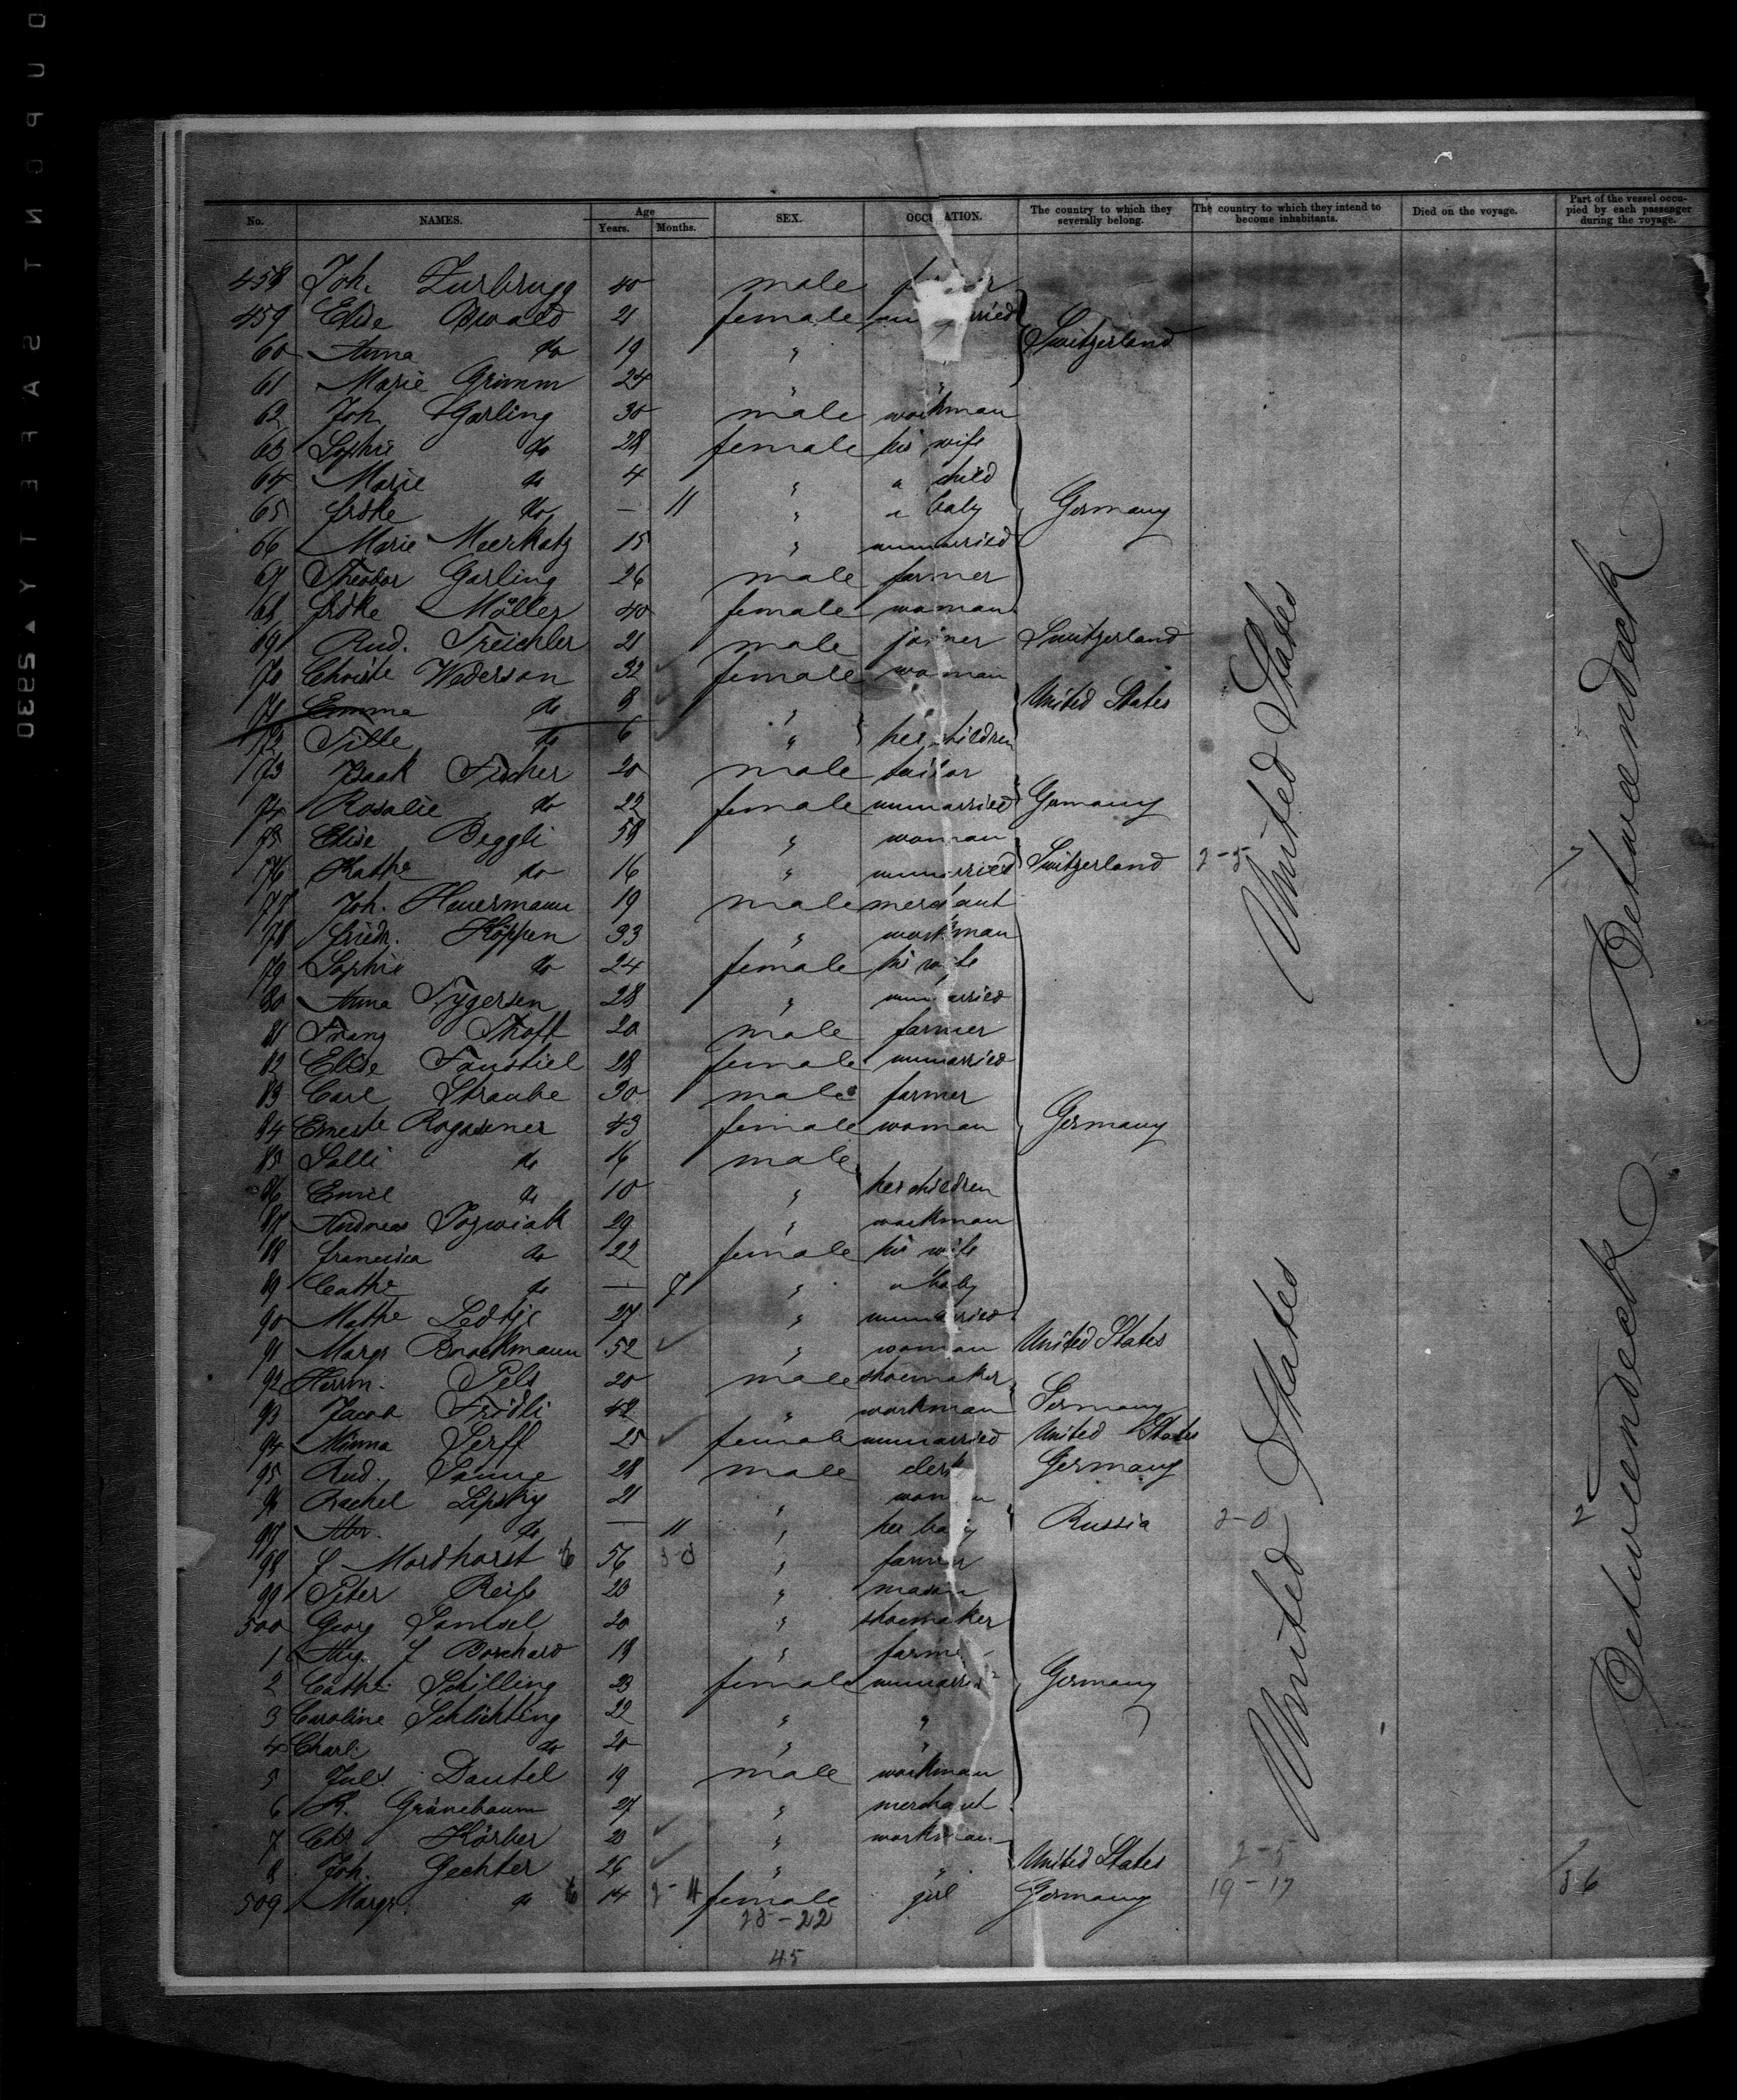 DUPONT SAFETY ▲ 5290
No. NAMES. Age Years. Months. SEX. OCCUPATION. The country to which they severally belong. The country to which they intend to become inhabitants. Died on the voyage. Part of the vessel occupied by each passenger during the voyage.
458 Joh. Zurbrugg 40 male
459 Elise Oswald 21 female Switzerland
60 Anna do 19 "
61 Marie Grimm 24 " "
62 Joh Garling 30 male workman
63 Sophie do 28 female his wife
64 Marie do 4 " a child
65 Frdke do — 11 " a baby Germany
66 Marie Meerkatz 15 " unmarried
67 Theodor Garling 26 male farmer
68 Frdke Möller 40 female woman
69 Rud. Treichler 21 male joiner Switzerland
70 Christe Wederson 32 female woman
71 Emma do 9 " United States
72 Tille do 6 " her children
73 Isaak Fischer 20 male tailor
74 Rosalie do 22 female unmarried Germany
75 Elise Beggli 58 " woman
76 Kathe do 16 " unmarried Switzerland 2-5
77 Joh. Heuermann 19 male merchant
78 Friedr. Köppen 33 " workman
79 Sophie do 24 female his wife
80 Anna Tygersen 28 " unmarried
81 Franz Thoft 20 male farmer
82 Elise Faustiel 28 female unmarried
83 Carl Straube 30 male farmer
84 Erneste Rogasener 43 female woman Germany
85 Salli do 16 male
86 Emil do 10 " her children
87 Andreas Jozwiak 29 " workman
88 Francisca do 22 female his wife
89 Cathe do — 7 " a baby
90 Mathe Ledtje 27 " unmarried
91 Margr Brockmann 52 " woman United States
92 Herrm. Pels 20 male shoemaker
93 Jacob Fridli 42 " workman Germany
94 Minna Serff 25 female unmarried United States
95 Rud. Sanne 28 male clerk Germany
96 Rachel Lipsky 21 " woman
97 Abr. do — 11 " her baby Russia 2-0
98 J Mordhorst 56 " farmer
99 Peter Reifs 23 " mason
500 Georg Samsel 20 " shoemaker
1 Aug. J Borchard 19 " farmer
2 Cathe Schilling 23 female unmarried Germany
3 Caroline Schlichting 22 " "
4 Charl. do 20 " "
5 Juls Dautel 19 male workman
6 R. Grünebaum 27 " merchant
7 Chr Körber 23 " workman
8 Joh. Gechter 26 " " United States 2-5
509 Margr. do 14 female girl Germany 19-17
23-22
45
United States
United States
Betweendeck
Betweendeck